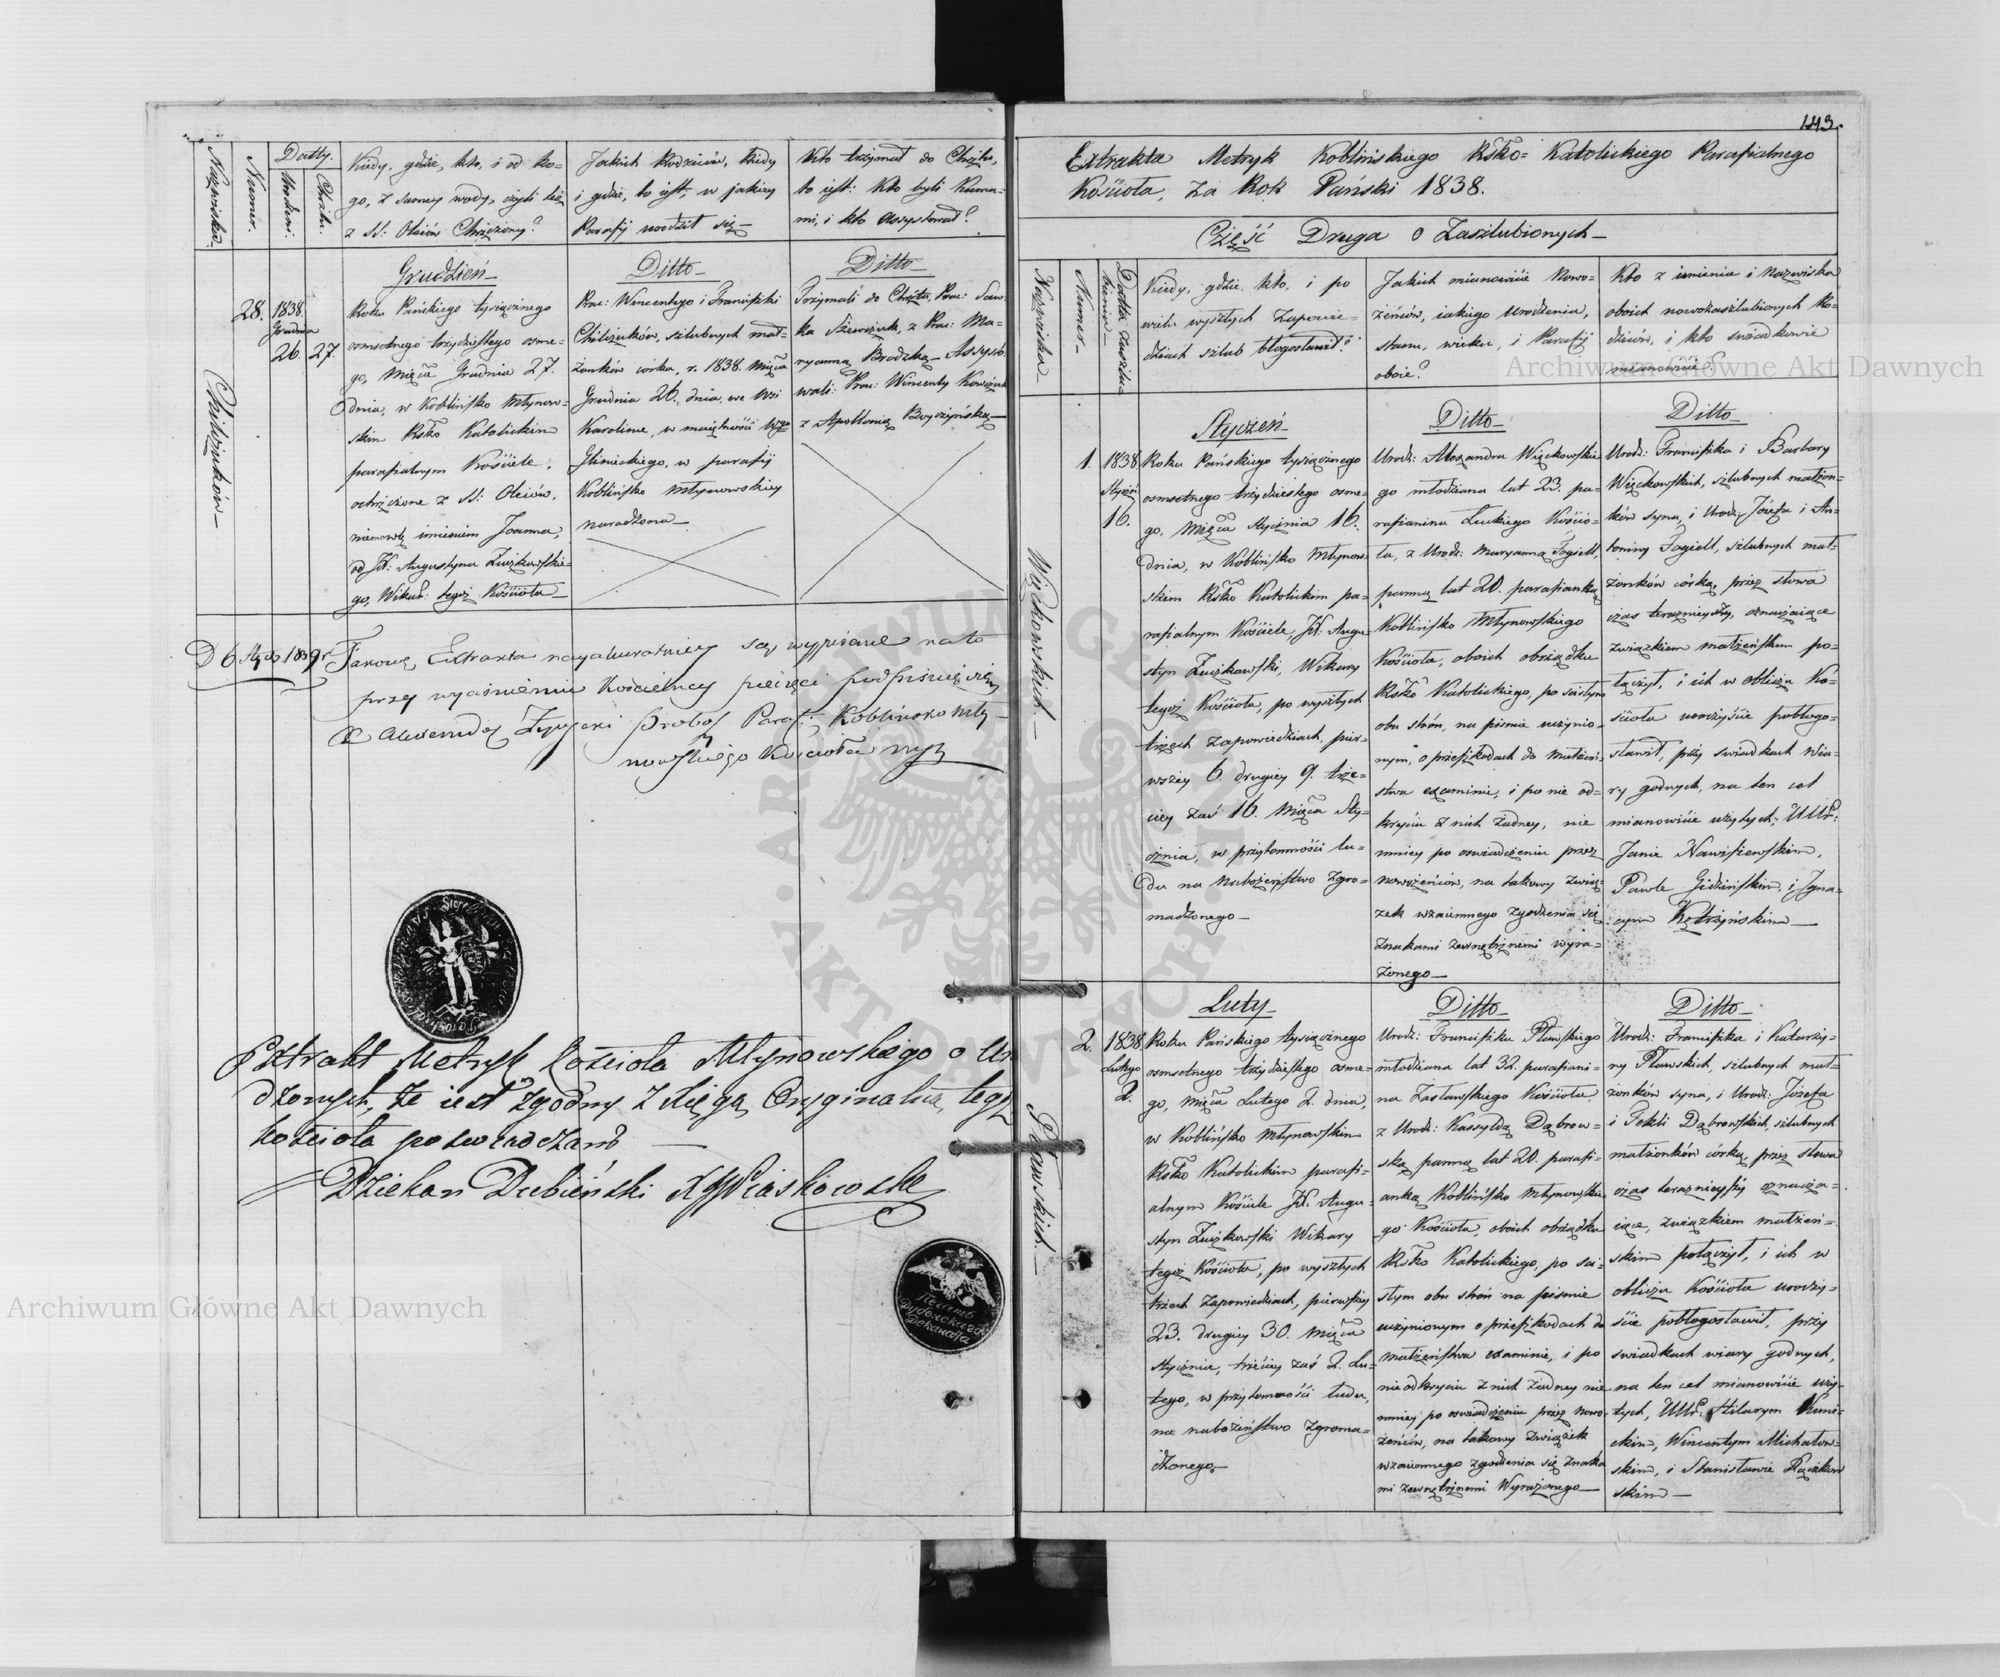 Nazwiska.
Numer.
Datty.
Urodzin:
Chrztu.
Kiedy, gdzie, kto, i od ko=
go, z samey wody, czyli też
z SS: Oleiów Chrzczony?
Jakich Rodziców, kiedy
i gdzie, to iest, w jakiey
Parafij urodził się
Kto trzymał do Chrztu,
to iest: kto byli Kuma=
mi, i kto Assystował?
Chiliziuków
28.
1838.
Grudnia
26.
27.
Grudzień
Roku Pańskiego tysiącznego
osmsetnego trzydziestego osme=
go, Mięca Grudnia 27.
dnia, w Koblińsko Młynow=
skim Rsko Katolickim
parafialnym Kościele,
ochrzczone z SS: Oleiów,
niemowlę imieniem Joanna,
od JX: Augustyna Zwiżkowskie=
go, Wikar: tegoż Kościoła
Ditto
Prac: Wincentego i Franciszki
Chiliziuków, szlubnych mał=
żonków córka, r. 1838. Mięca
Grudnia 26. dnia, we wsi
Karolinie, w maiętności
Glinieckiego, w parafij
Koblińsko Młynowskiey
narodzona
Ditto
Trzymali do Chrztu, Prac: Saw=
ka Szewczuk, z Prac: Ma=
ryanną Brodzką Assysto=
wali: Prac: Wincenty
z Apollonią Boyczyńską
D 6 1839 r Takowe Extrakta nayakuratniey są wypisane na to
przy wyciśnieniu Kościelney pieczęci podpisuię się
X Alexander Proboszcz Paraf: Koblińsko Mły
nowskiego Kościoła
Extrakt Metryk Kościoła Młynowskiego o Uro
dzonych, że iest zgodny z Xięgą Oryginalną tegoż
Kościoła poswiadczam
Dziekan Dubieński
Печать
Дубенскаго
Деканата
143.
Extrakta Metryk Koblińskiego Rsko= Katolickiego Parafialnego
Kościoła, za Rok Pański 1838.
Część Druga o Zaszlubionych
Nazwiska
Numer
Datta Zaszlu=
bienia
Kiedy, gdzie, kto, i po
wielu wyszłych Zapowie=
dziach szlub błogosławił?
Jakich mianowicie Nowo=
żeńców, iakiego Urodzenia,
stanu, wieku, i Parafij
oboie?
Kto z imienia i Nazwiska
oboich nowozaszlubionych Ro=
dziców, i kto swiadkowie
mianowicie?
Więckowskich
1.
1838
Stycznia
16.
Styczeń
Roku Pańskiego tysiącznego
osmsetnego trzydziestego osme=
go, Mięca Stycznia 16.
dnia, w Koblińsko Młynow=
skim Rsko Katolickim pa=
rafialnym Kościele, JX. Augu=
styn Zwiżkowski, Wikary
tegoż Kościoła, po wyszłych
trzech zapowiedziach, pier=
wszey 6. drugiey 9. trze=
ciey zaś 16. Mięca Sty=
cznia, w przytomności lu=
du na Nabożeństwo zgro=
madzonego
Ditto
Urodz: Alexandra Więckowskie=
go młodziana lat 23. pa=
rafianina Łuckiego Kościo=
ła, z Urodz: Maryanną Jagiełł,
panną lat 20. parafianką
Koblińsko Młynowskiego
Kościoła, oboich obrządku
Rsko Katolickiego, po scisłym
obu stron, na pismie uczynio=
nym, o przeszkodach do małżeń=
stwa examinie, i po nie od=
kryciu z nich żadney, nie
mniey po oswiadczeniu przez
nowożeńców, na takowy zwią=
zek wzaiemnego zgodzenia się
znakami zewnętrznemi wyra=
żonego
Ditto
Urodz: Franciszka i Barbary
Więckowskich, szlubnych małżon=
ków syna, i Urodz: Józefa i An=
toniny Jagiełł, szlubnych mał=
żonków córkę, przez słowa
czas teraznieyszy, oznaczaiące
związkiem małżeńskim po=
łączył, i ich w obliczu Ko=
ścioła uroczyście pobłogo=
sławił, przy swiadkach wia=
ry godnych, na ten cel
mianowicie użytych, UUr:
Janie Nawiszewskim,
Pawle Gidzińskim, i Igna=
cym Kętrzyńskim
Pławskich
2.
1838
Lutego
2.
Luty
Roku Pańskiego tysiącznego
osmsetnego trzydziestego osme=
go, Mięca Lutego 2. dnia,
w Koblińsko Młynowskim
Rsko Katolickim parafi=
alnym Kościele JX. Augu=
styn Zwiżkowski Wikary
tegoż Kościoła, po wyszłych
trzech Zapowiedziach, pierwszey
23. drugiey 30. Mięca
Stycznia, trzeciey zaś 2. Lu=
tego, w przytomności ludu,
na nabożeństwo zgroma=
dzonego
Ditto
Urodz: Franciszka Pławskiego
młodziana lat 32. parafiani=
na Zasławskiego Kościoła
z Urodz: Kassyldą Dąbrow=
ską panną lat 20. parafi=
anką Koblińsko Młynowskie=
go Kościoła, oboich obrządku
Rsko Katolickiego, po sci=
słym obu stron na pismie
uczynionym o przeszkodach do
małżeństwa examinie, i po
nieodkryciu z nich żadney nie
mniey po oswiadczeniu przez nowo=
żeńców, na takowy związek
wzaiemnego zgodzenia się znaka
mi zewnętrznemi wyrażonego
Ditto
Urodz: Franciszka i Katarzy=
ny Pławskich, szlubnych mał=
żonków syna, i Urodz: Józefa
i Tekli Dąbrowskich, szlubnych
małżonków córkę, przez słowa
czas teraznieyszy oznacza=
iące, związkiem małżeń=
skim połączył, i ich w
obliczu Kościoła uroczy=
ście pobłogosławił, przy
swiadkach wiary godnych,
na ten cel mianowicie uży=
tych, UUr: Hilarym Kuni=
ckim, Wincentym Michałow=
skim, i Stanisławie Rączkow
skim
Archiwum Główne Akt Dawnych
Archiwum Główne Akt Dawnych
ARCHIWUM GŁÓWNE AKT DAWNYCH